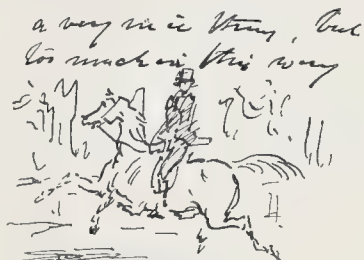 a very nice thing, but
too much in this way